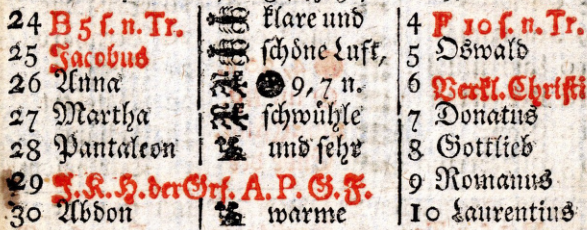 24 B 5 s. n. Tr. klare und 4 F 10 s. n. Tr.
25 Jacobus schöne Luft, 5 Oswald
26 Anna 9, 7 n. 6 Verkl. Christi
27 Martha schwühle 7 Donatus
28 Pantaleon und sehr 8 Gottlieb
29 J. K. H. der Grf. A. P. G. F. 9 Romanus
30 Abdon warme 10 Laurentius